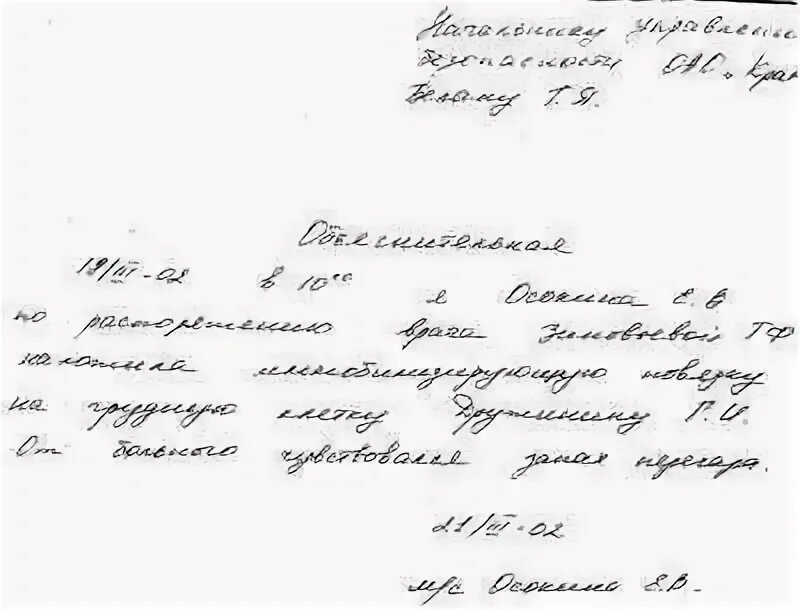 Начальнику управлени
безопасности ОАО "Крас
Белану Г.Я.
Объяснительная
19/III-02 в 10°° я Осокина Е.В
по распоряжению врача Зиновьевой ТФ
наложила иммобилизирующую повязку
на грудную клетку Дружинину Г.И.
От больного чувствовался запах перегара.
21/III-02
м/с Осокина Е.В.